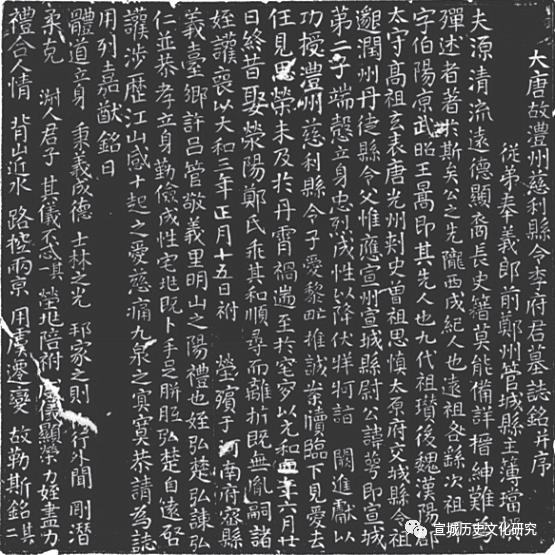 大唐故澧州慈利縣令李府君墓誌銘并序
從弟奉義郎前鄭州管城縣主薄璫
夫源清流遠德顯裔長史籍莫能備詳搢紳難
殫述者著於斯矣公之先隴西成紀人也遠祖咎繇次祖
字伯陽京武昭王暠即其先人也九代祖瓚後魏漢陽
太守高祖玄表唐光州刺史曾祖思慎太原府文城縣令祖
邈潤州丹徒縣令父惟應宣州宣城縣尉公諱萼即宣城
第二子端愨立身忠烈成性以降伏牂牁詣 闕進獻以
功授澧州慈利縣令子愛黎甿推誠案牘臨下見愛去
任見思榮未及於丹霄禍遄至於窀穸以元和 年六月廿
日終昔娶滎陽鄭氏乖其和順尋而離折既無胤嗣諸
姪護喪以大和三年正月十五日祔 塋殯于河南府密縣
義臺鄉許呂管敬義里明山之陽禮也姪弘楚弘諫弘
仁並恭孝立身勤儉成性宅兆既卜手足胼胝弘楚自遠啓
護涉歷江山感十起之愛慈痛九泉之寘寞恭請為誌
用列嘉猷銘曰
體道立身 秉義成德 士林之光 邦家之則 行外閒 剛潛
柔克 淑人君子 其儀不忒其 塋兆陪祔 儀顯榮力姪盡力
禮合人情 背山近水 路接兩京 用虞遷憂 故勒斯銘其
宣城历史文化研究